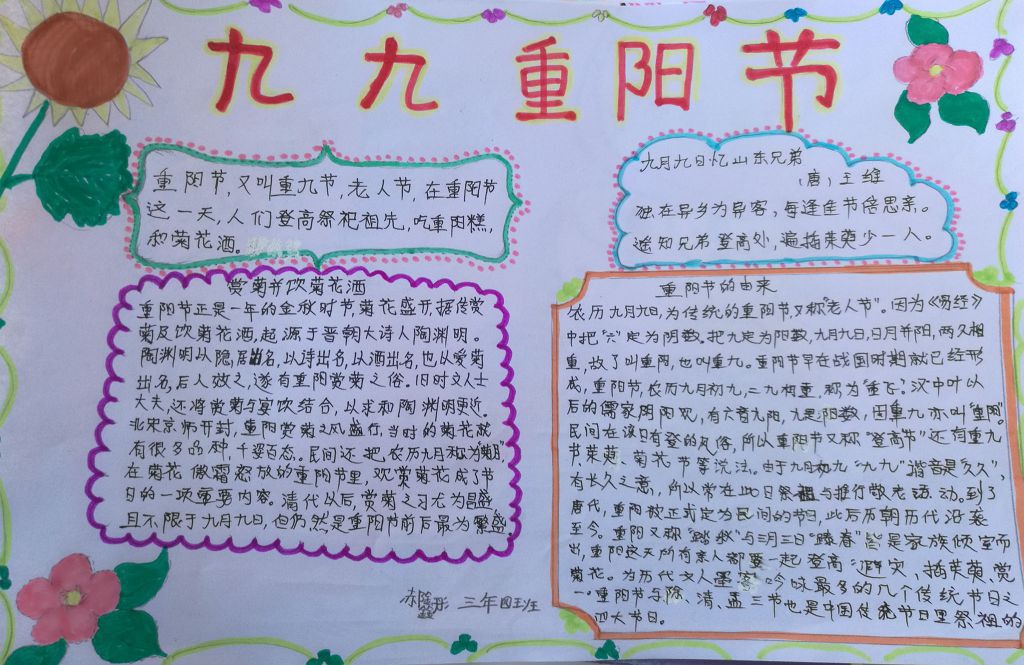 九九重阳节
重阳节,又叫重九节,老人节,在重阳节
这一天,人们登高祭祀祖先,吃重阳糕,
和菊花酒。
九月九日忆山东兄弟
(唐)王维
独在异乡为异客,每逢佳节倍思亲。
遥知兄弟登高处,遍插茱萸少一人。
赏菊并饮菊花酒
重阳节正是一年的金秋时节,菊花盛开,据传赏
菊及饮菊花酒,起源于晋朝大诗人陶渊明。
陶渊明以隐居出名,以诗出名,以酒出名,也从爱菊
出名,后人效之,遂有重阳赏菊之俗。旧时文人士
大夫,还将赏菊与宴饮结合,以求和陶渊明更近。
北宋京师开封,重阳赏菊之风盛行,当时的菊花就
有很多品种,千姿百态。民间还把农历九月称为"菊月",
在菊花傲霜怒放的重阳节里,欢赏菊花成了节
日的一项重要内容。清代以后,赏菊之习尤为昌盛,
且不限于九月九日,但仍然是重阳节前后最为繁盛。
重阳节的由来
农历九月九日,为传统的重阳节,又称"老人节"。因为《易经》
中把"六"定为阴数,把九定为阳数,九月九日,日月并阳,两九相
重,故了叫重阳,也叫重九。重阳节早在战国时期就已经形
成,重阳节,农历九月初九,二九相重,称为"重九"。汉中叶以
后的儒家阴阳观,有六阴九阳,九是阳数,因重九亦叫"重阳"。
民间在该日有登的风俗,所以重阳节又称"登高节"还有重九
节、茱萸、菊花节等说法。由于九月初九"九九"谐音是"久久",
有长久之意,所以常在此日祭祖与推行敬老活动。到了
唐代,重阳被正式定为民间的节日,此后历朝历代沿袭
至今。重阳又称"踏秋"与三月三日"踏春"皆是家族倾室而
出,重阳这天所有亲人都要一起登高"避灾",插茱萸、赏
菊花。为历代文人墨客吟咏最多的几个传统节日之
一重阳节与除、清、盂三节也是中国传统节日里祭祖的
四大节日。
三年四班